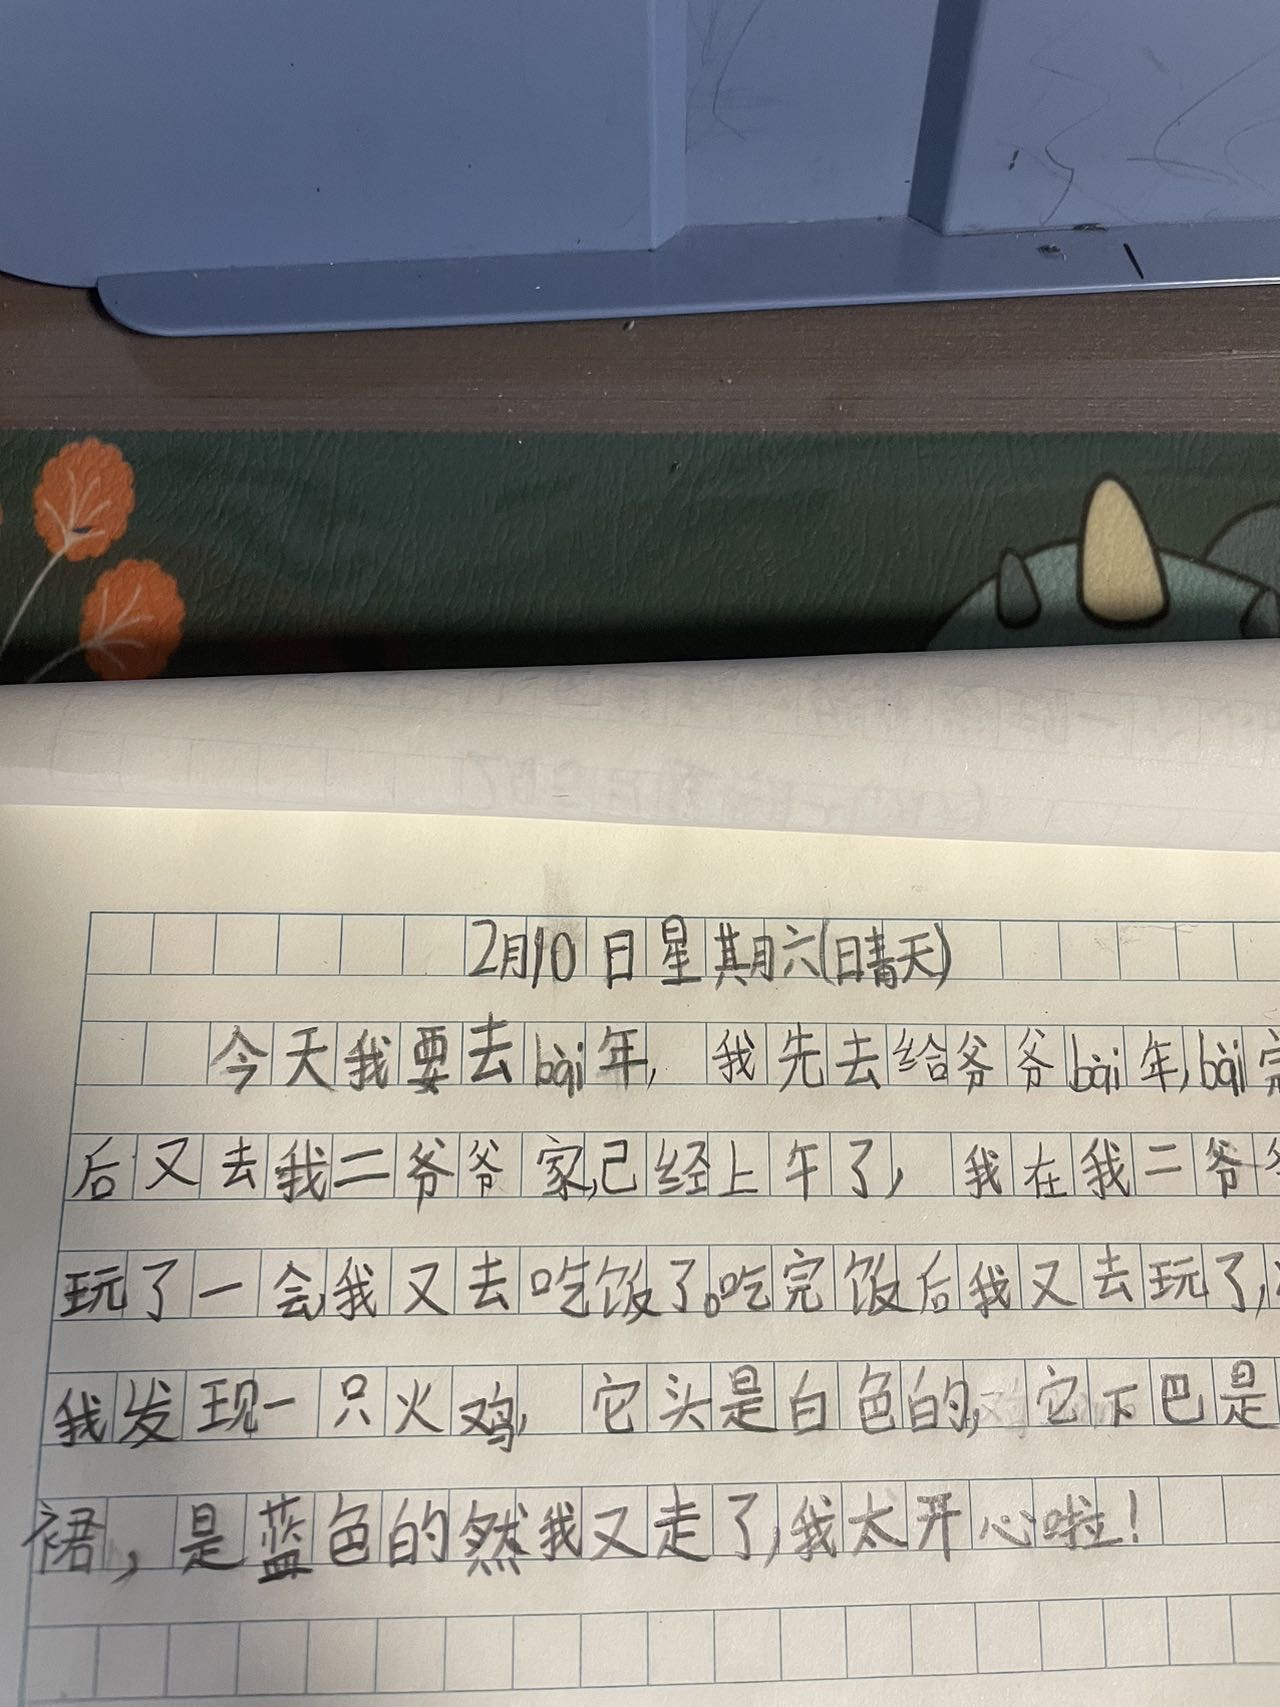 2月10日星期六(晴天)
今天我要去bài年,我先去给爷爷bài年,bài完
后又去我二爷爷家,己经上午了,我在我二爷爷
玩了一会,我又去吃饭了。吃完饭后我又去玩了,
我发现一只火鸡,它头是白色的,它下巴是
裙,是蓝色的然我又走了,我太开心啦!